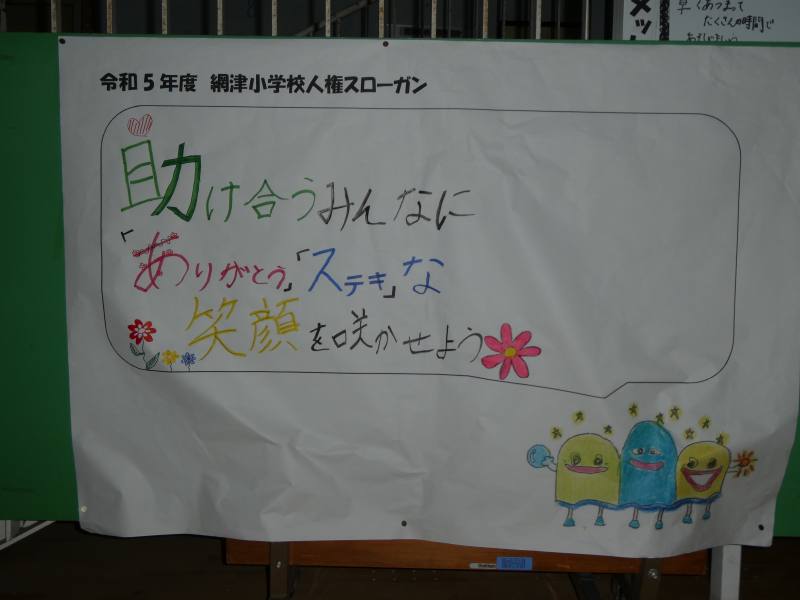 早くあつまって
たくさんの時間で
令和5年度 網津小学校人権スローガン
助け合うみんなに
「ありがとう」「ステキ」な
笑顔を咲かせよう